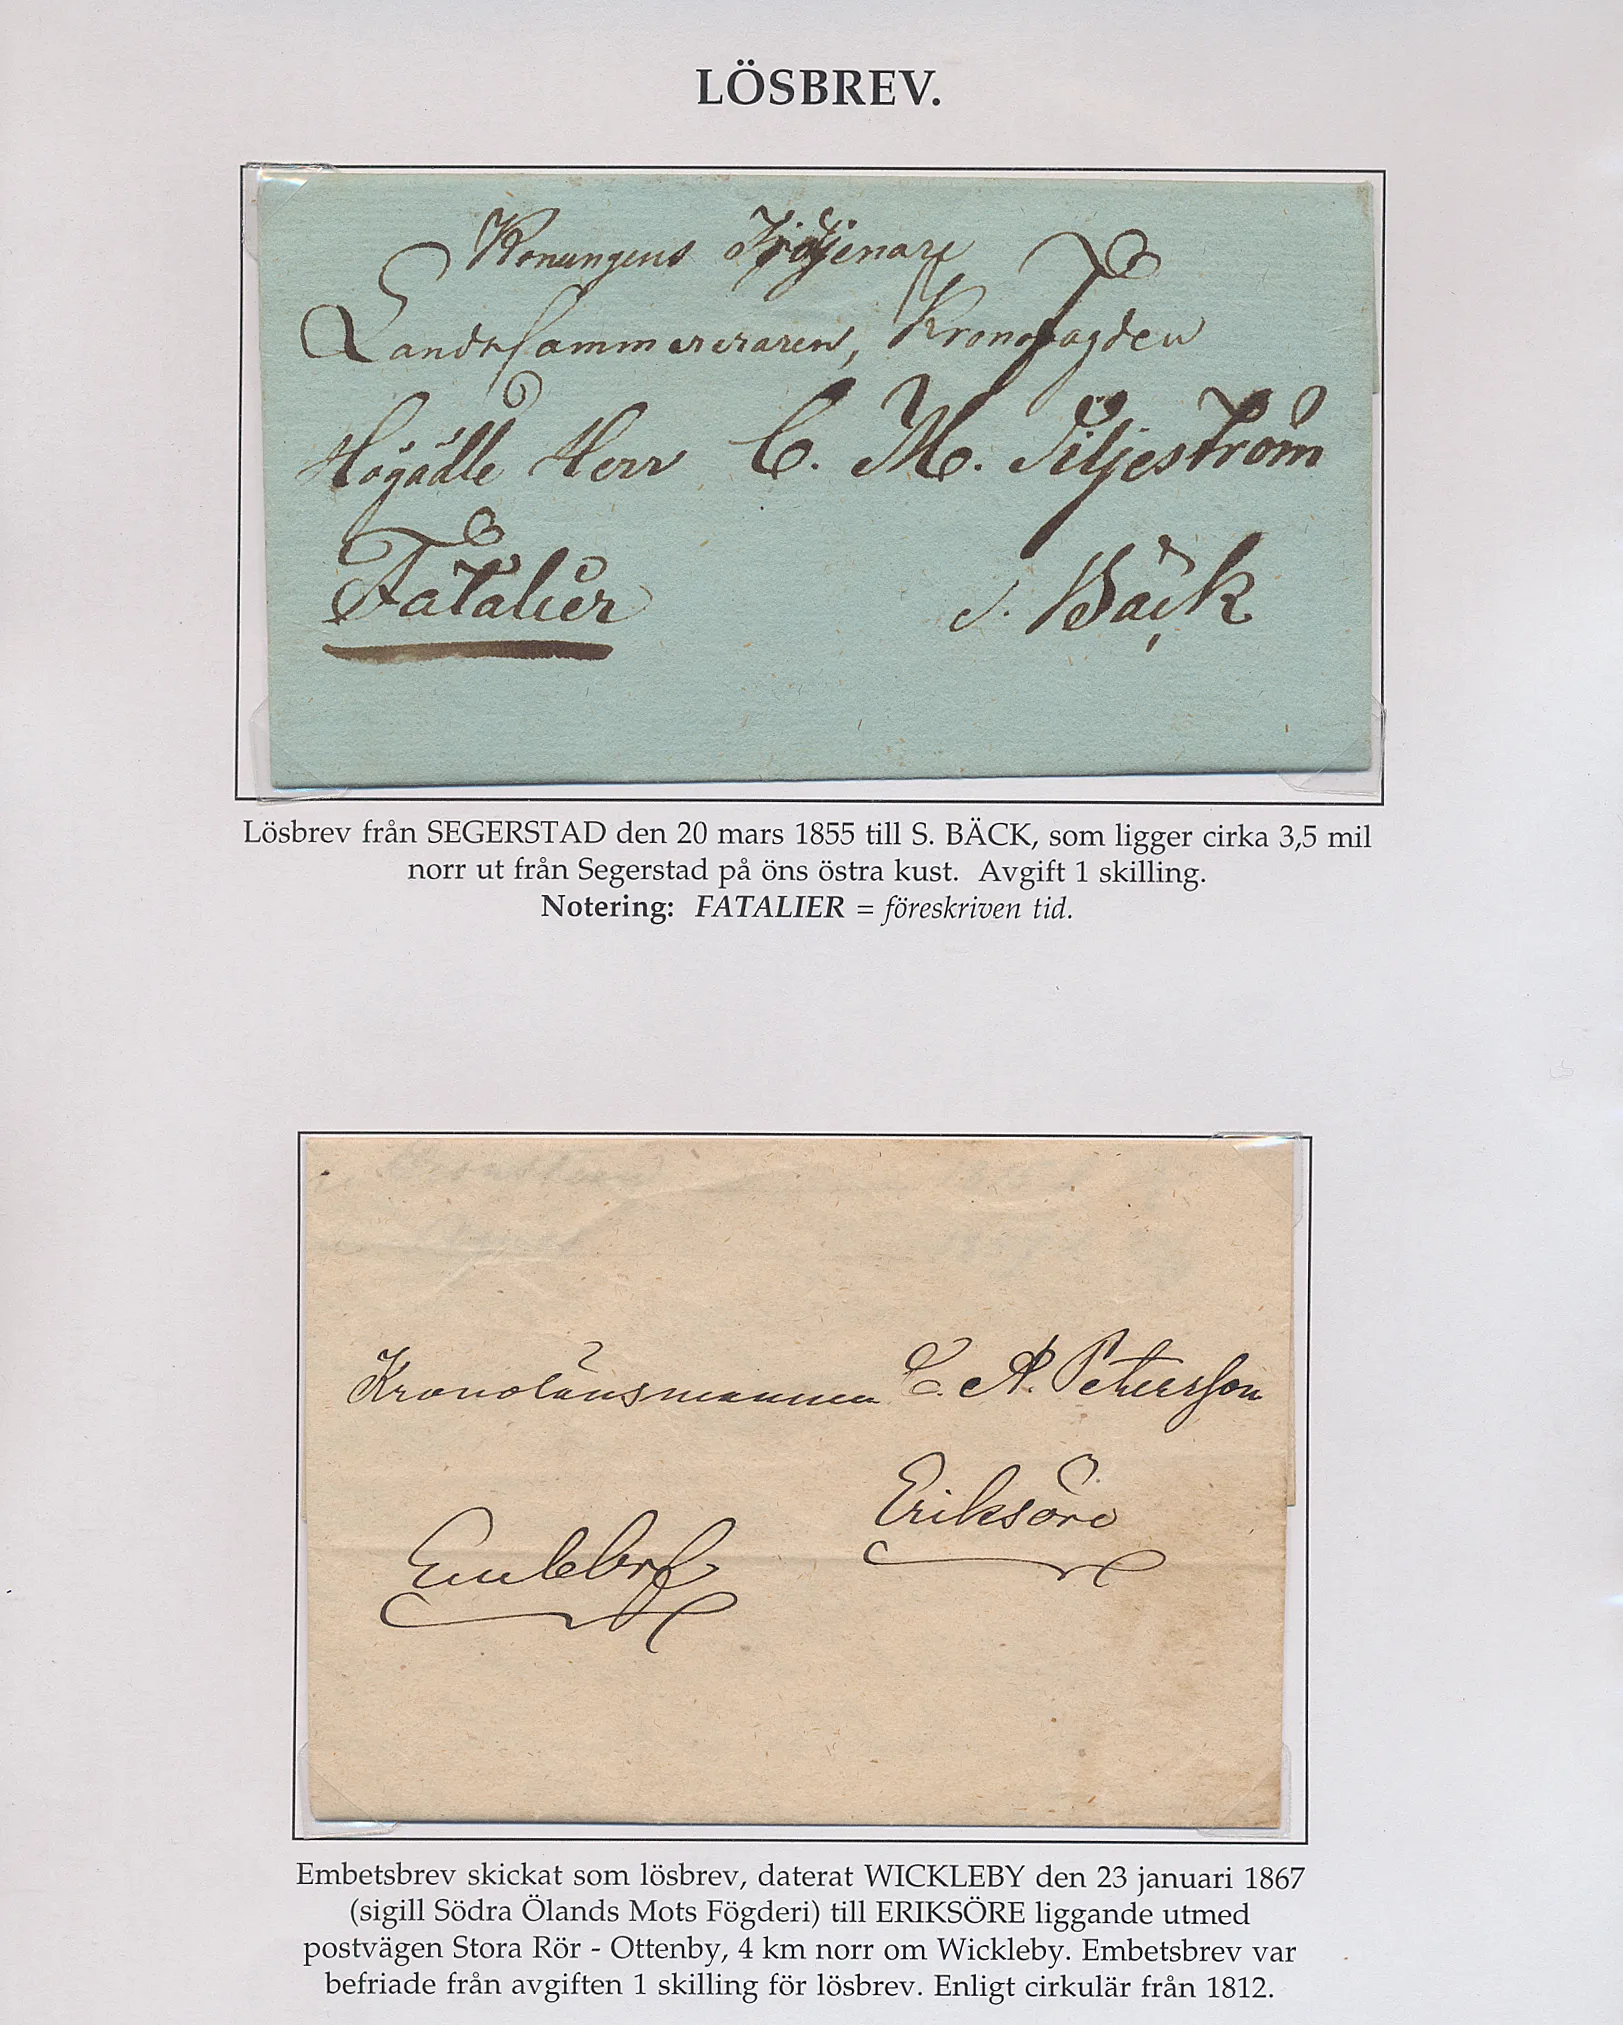 LÖSBREV.
Konungens Trotjenare
Landskammereraren, Kronofogden
Högädle Herr C. M. Tiljeström
Fatalier
S. Bäck
Lösbrev från SEGERSTAD den 20 mars 1855 till S. BÄCK, som ligger cirka 3,5 mil
norr ut från Segerstad på öns östra kust. Avgift 1 skilling.
Notering: FATALIER = föreskriven tid.
Kronolänsmannen C. A. Petersson
Eriksöre
Embtsbrf
Embetsbrev skickat som lösbrev, daterat WICKLEBY den 23 januari 1867
(sigill Södra Ölands Mots Fögderi) till ERIKSÖRE liggande utmed
postvägen Stora Rör - Ottenby, 4 km norr om Wickleby. Embetsbrev var
befriade från avgiften 1 skilling för lösbrev. Enligt cirkulär från 1812.